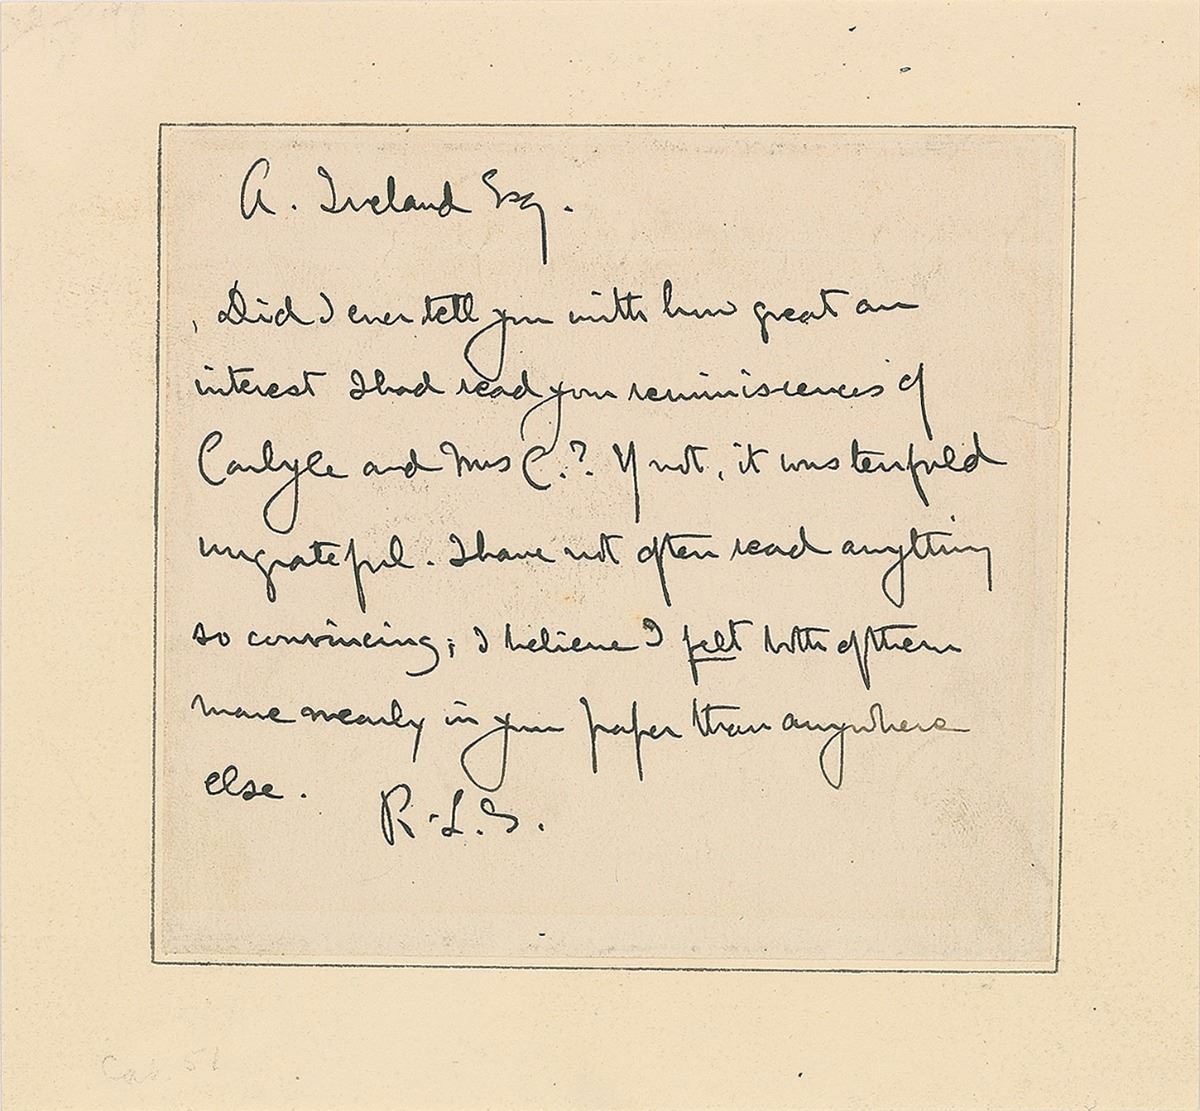 A. Ireland Esq.
Did I ever tell you with how great an
interest I had read your reminiscences of
Carlyle and Mrs C.? If not, it was tenfold
ungrateful. I have not often read anything
so convincing; I believe I felt both of them
more nearly in your paper than anywhere
else.
R.L.S.